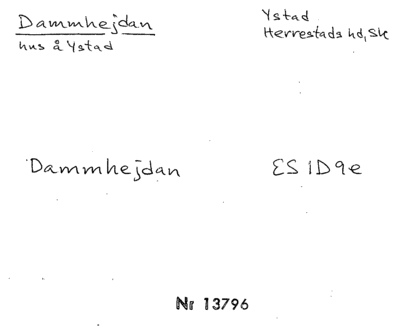 Dammhejdan
hus å Ystad
Ystad
Herrestads hd, Sk
Dammhejdan
ES 1D9e
Nr 13796